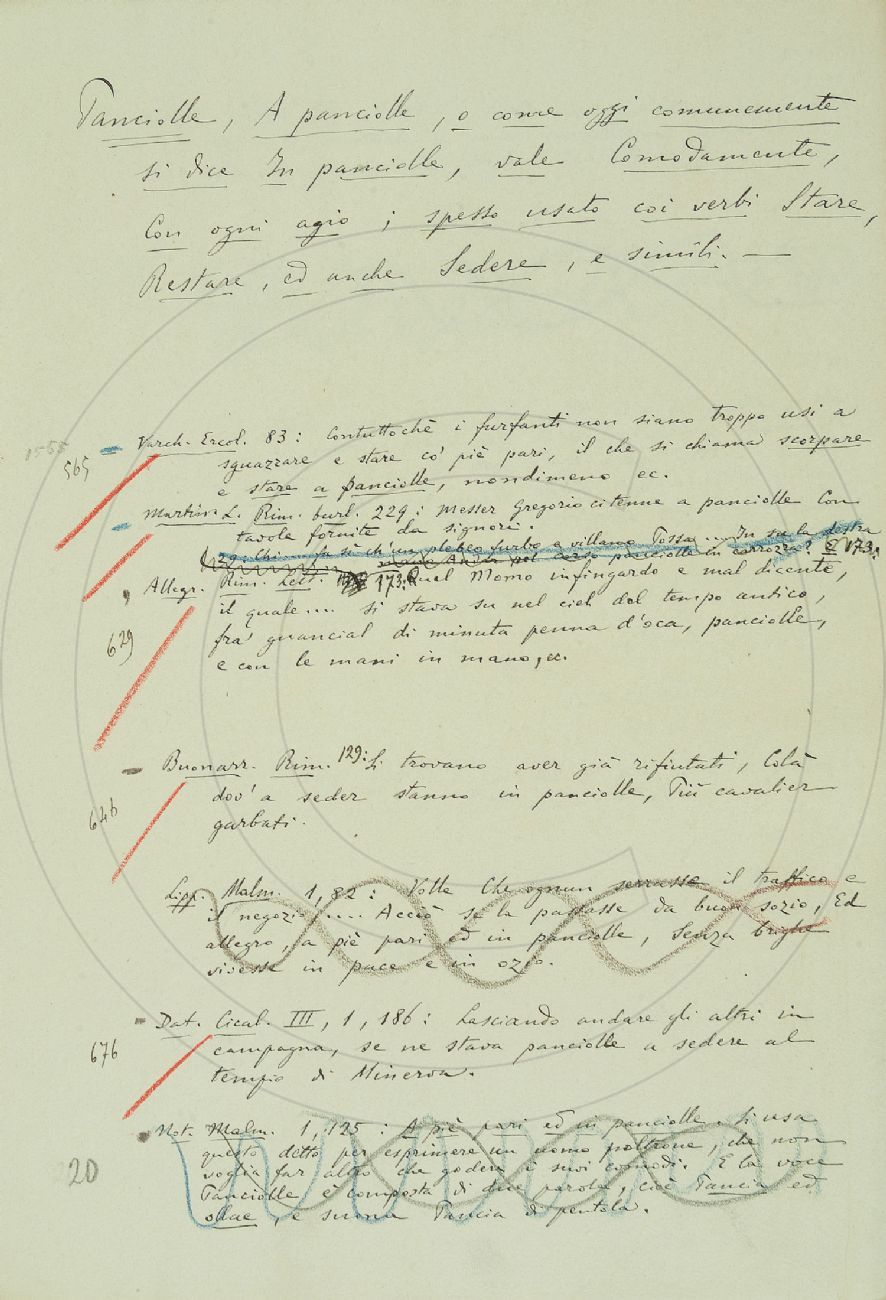 Panciolle, A panciolle, o come oggi comunemente
si dice In panciolle, vale Comodamente,
Con ogni agio; spesso usato coi verbi Stare,
Restare, ed anche Sedere, e simili. —
1565
565
Varch. Ercol. 83: Contuttochè i furfanti non siano troppo usi a
sguazzare e stare co' piè pari, il che si chiama scorpare
e stare a panciolle, nondimeno ec.
Martin. L. Rim. burl. 229: Messer Gregorio ci tenne a panciolle Con
tavole fornite da signori.
Chi fa si ch'un plebeo furbo e villano Possa .... In su la destra
panciolle in carrozza? E 173:
Allegr. Rim. Lett. 173: Quel Momo infingardo e mal dicente,
il quale .... si stava su nel ciel del tempo antico,
fra' guancial di minuta penna d'oca, panciolle,
e con le mani in mano, ec.
629
Buonarr. Rim. 129: Si trovano aver già rifiutati, Colà
dov' a seder stanno in panciolle, Più cavalier
garbati.
646
Lipp. Malm. 1, 82: Volle Che ognun serrasse il traffico e
il negozio .... Acciò se la passasse da buon sozio, Ed
allegro, a piè pari ed in panciolle, Senza brighe
vivesse in pace e in ozio.
Dat. Cical. III, 1, 186: Lasciando andare gli altri in
campagna, se ne stava panciolle a sedere al
tempio di Minerva.
676
Not. Malm. 1, 125: A piè pari ed in panciolle. Si usa
questo detto per esprimere un uomo poltrone, che non
voglia far altro che godere i suoi comodi. E la voce
Panciolle è composta di due parole, cioè Pancia ed
olae, e suona Pancia di pentola.
20